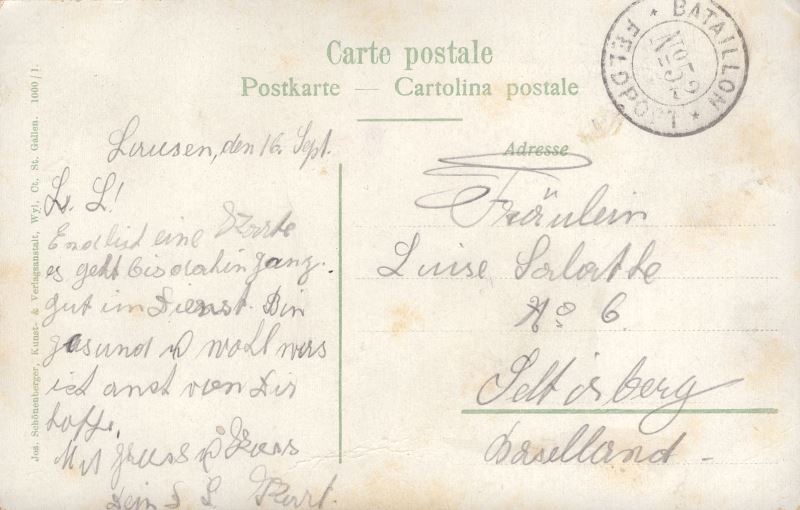 Carte postale
Postkarte — Cartolina postale
BATAILLON
FELDPOST
No 52
Lausen, den 16. Sept.
Ls. L!
Endlich eine Karte
es geht bis dahin ganz.
gut im Dienst. Bin
gesund u wohl was
ich auch von Dir
hoffe.
Mit Gruss u Kuss
Dein d L Karl.
Adresse
Fräulein
Luise Salathe
No 6.
Seltisberg
Baselland -
Jos. Schönenberger, Kunst- & Verlagsanstalt, Wyl, Ct. St. Gallen. 1000/1